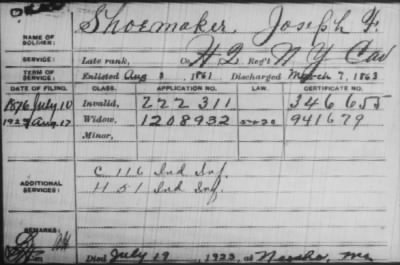 DEAD
NAME OF SOLDIER: Shoemaker, Joseph F.
SERVICE: Late rank, Co. H 2 Reg't N Y Cav
TERM OF SERVICE: Enlisted Aug 3, 1861 Discharged March 7, 1863
DATE OF FILING. CLASS. APPLICATION NO. LAW. CERTIFICATE NO.
1876 July 10 Invalid, 222 311 346 655
1923 Aug. 17 Widow, 1208932 941679
Minor,
ADDITIONAL SERVICES: C 116 Ind Inf.
H 51 Ind Inf.
REMARKS:
Died July 19, 1923, at Neosho, Mo